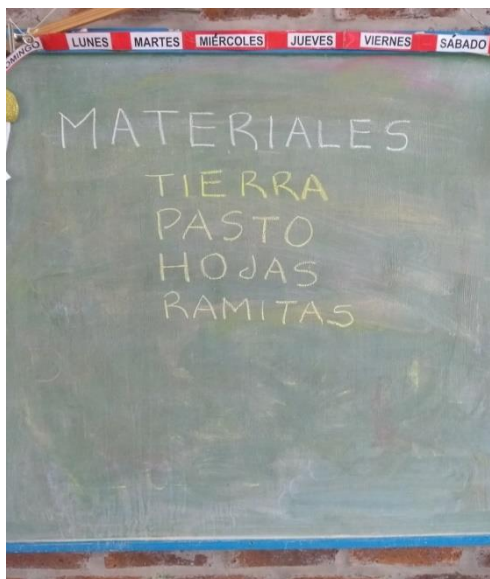 DOMINGO LUNES MARTES MIÉRCOLES JUEVES VIERNES SÁBADO
MATERIALES
TIERRA
PASTO
HOJAS
RAMITAS